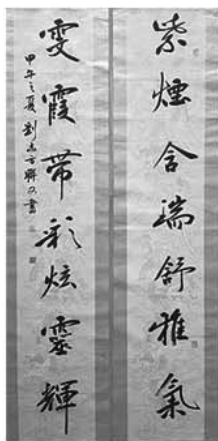 紫煙含瑞舒雅氣
雯霞帶彩炫靈輝
甲午之夏劉志方联久書